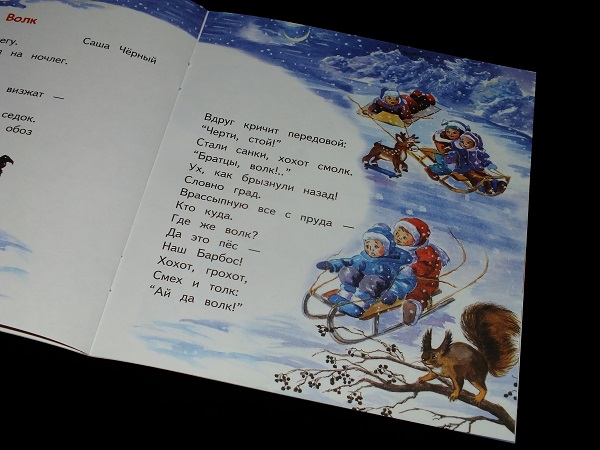 Волк
Саша Чёрный
на ночлег.
визжат —
седок.
обоз
Вдруг кричит передовой:
"Черти, стой!"
Стали санки, хохот смолк.
"Братцы, волк!.."
Ух, как брызнули назад!
Словно град.
Врассыпную все с пруда —
Кто куда.
Где же волк?
Да это пёс —
Наш Барбос!
Хохот, грохот,
Смех и толк:
"Ай да волк!"